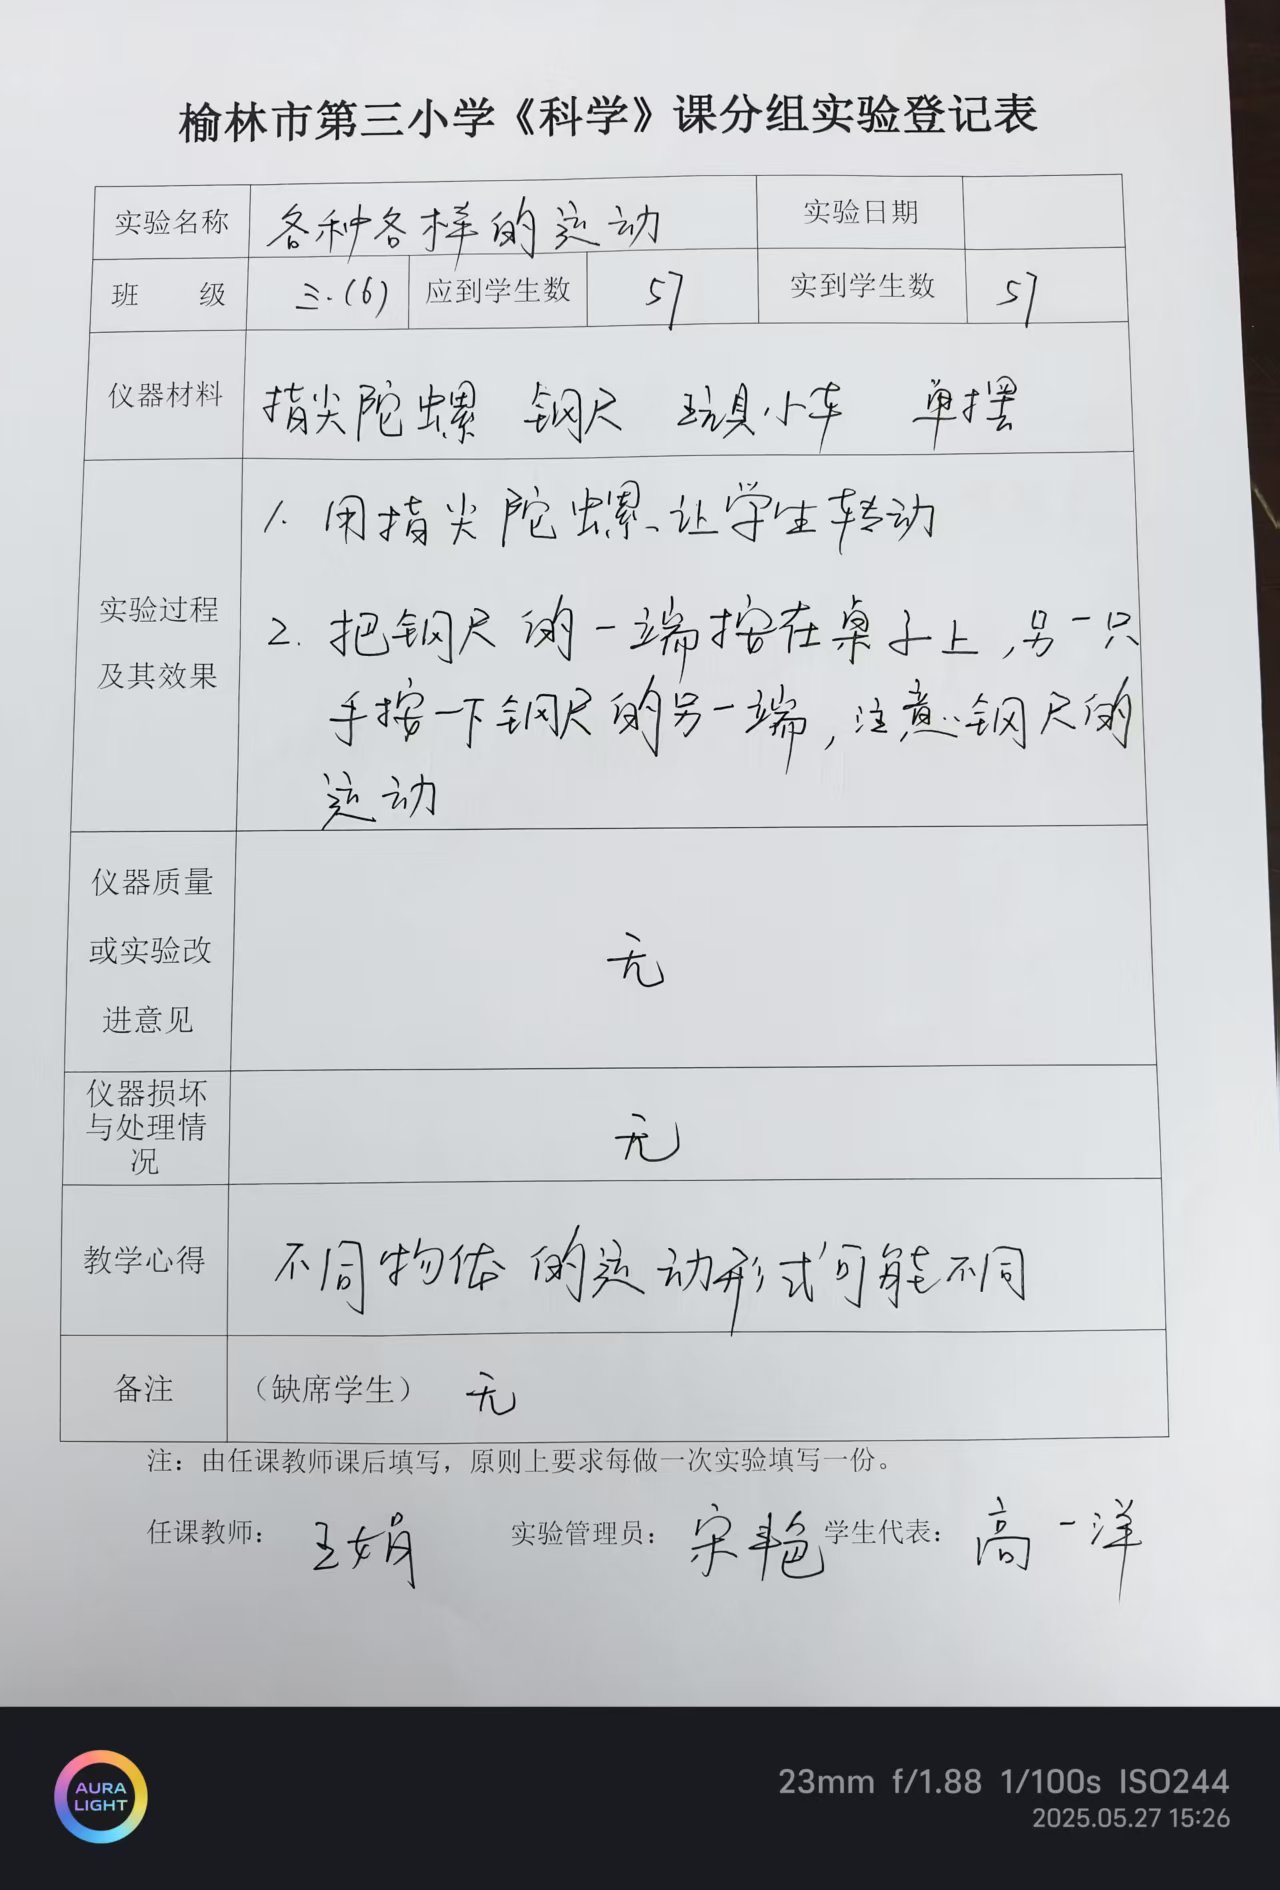 榆林市第三小学《科学》课分组实验登记表
实验名称 各种各样的运动 实验日期
班 级 三.(6) 应到学生数 57 实到学生数 57
仪器材料 指尖陀螺 钢尺 玩具小车 单摆
1. 用指尖陀螺、让学生转动
实验过程
及其效果
2. 把钢尺的一端按在桌子上,另一只
手按一下钢尺的另一端,注意钢尺的
运动
仪器质量
或实验改
进意见
无
仪器损坏
与处理情
况
无
教学心得 不同物体的运动形式可能不同
备注 (缺席学生) 无
注:由任课教师课后填写,原则上要求每做一次实验填写一份。
任课教师: 王娟 实验管理员: 宋艳 学生代表: 高一洋
AURA
LIGHT
23mm f/1.88 1/100s ISO244
2025.05.27 15:26